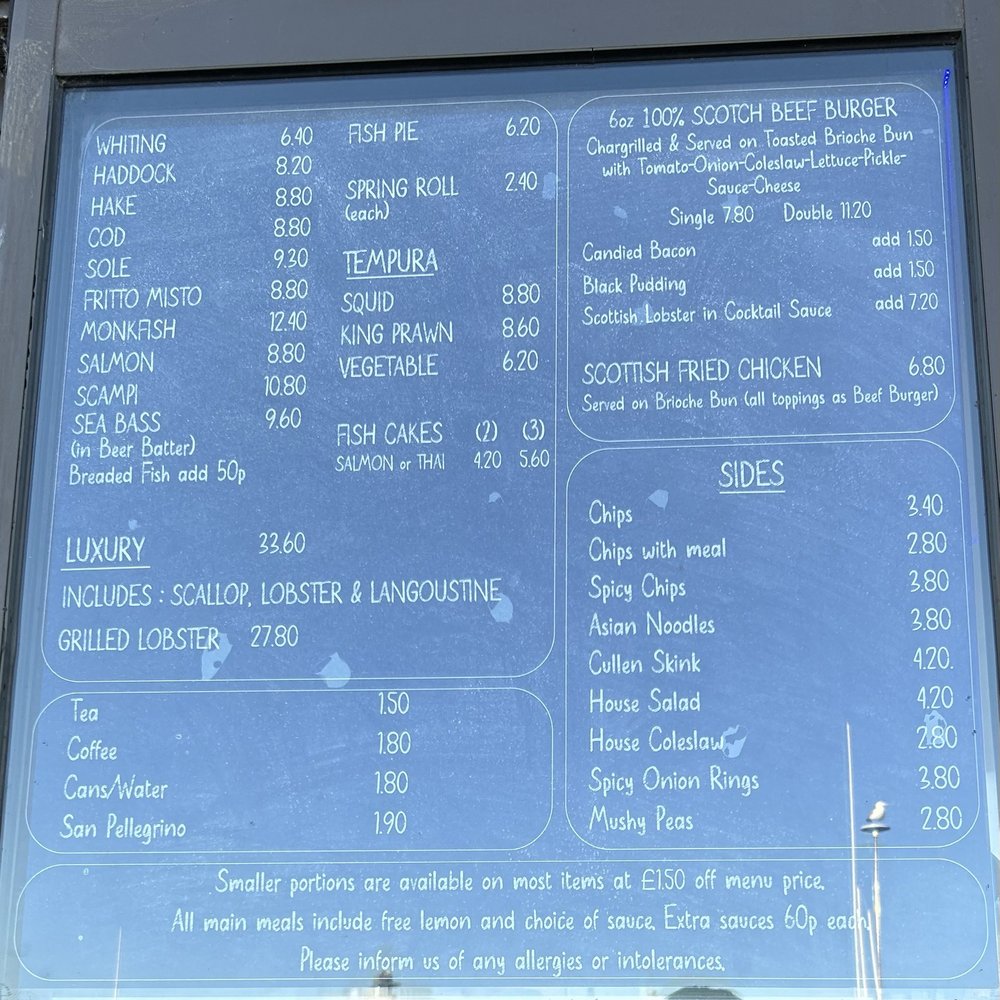 WHITING 6.40
HADDOCK 8.20
HAKE 8.80
COD 8.80
SOLE 9.30
FRITTO MISTO 8.80
MONKFISH 12.40
SALMON 8.80
SCAMPI 10.80
SEA BASS 9.60
(in Beer Batter)
Breaded Fish add 50p
FISH PIE 6.20
SPRING ROLL 2.40
(each)
TEMPURA
SQUID 8.80
KING PRAWN 8.60
VEGETABLE 6.20
FISH CAKES (2) (3)
SALMON or THAI 4.20 5.60
LUXURY 33.60
INCLUDES : SCALLOP, LOBSTER & LANGOUSTINE
GRILLED LOBSTER 27.80
Tea 1.50
Coffee 1.80
Cans/Water 1.80
San Pellegrino 1.90
6oz 100% SCOTCH BEEF BURGER
Chargrilled & Served on Toasted Brioche Bun
with Tomato-Onion-Coleslaw-Lettuce-Pickle-
Sauce-Cheese
Single 7.80 Double 11.20
Candied Bacon add 1.50
Black Pudding add 1.50
Scottish Lobster in Cocktail Sauce add 7.20
SCOTTISH FRIED CHICKEN 6.80
Served on Brioche Bun (all toppings as Beef Burger)
SIDES
Chips 3.40
Chips with meal 2.80
Spicy Chips 3.80
Asian Noodles 3.80
Cullen Skink 4.20.
House Salad 4.20
House Coleslaw 2.80
Spicy Onion Rings 3.80
Mushy Peas 2.80
Smaller portions are available on most items at £1.50 off menu price.
All main meals include free lemon and choice of sauce. Extra sauces 60p each.
Please inform us of any allergies or intolerances.